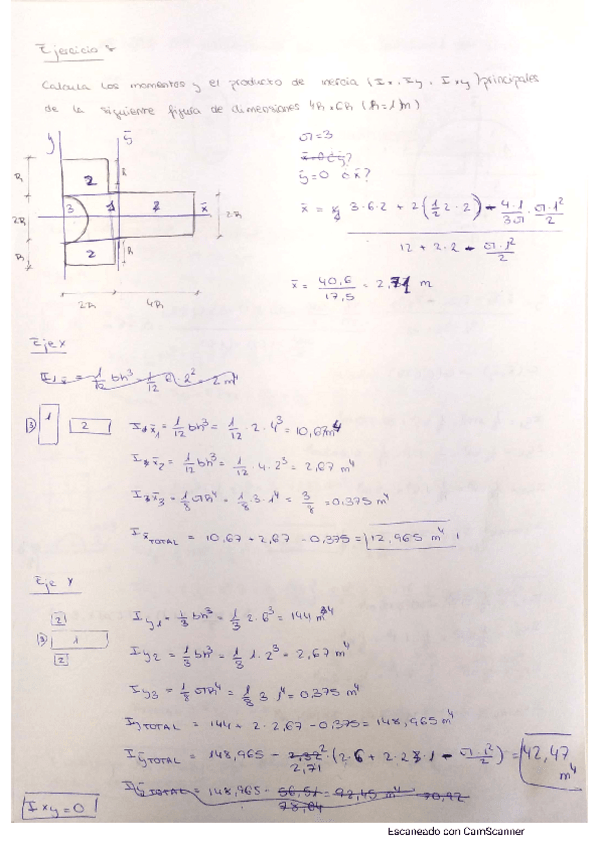 Ejercicio 8
Calcula los momentos y el producto de inercia (Ix, Iy, Ixy) principales
de la siguiente figura de dimensiones 4R x 6R (R=1m)
y ȳ
R 2 R
2R 3 1 2 x̄ 2R
R 2 R
2R 4R
π=3
x̄=0 ó ȳ?
ȳ=0 ó x̄?
x̄ = 3·6·2 + 2(1/2 2·2) - 4·1/3π · π·1²/2
12 + 2·2 - π·1²/2
x̄ = 40,6/17,5 = 2,71 m
Eje x
1/12 bh³ 1/12 6·2² = 2m⁴
3 1 2 I1x̄1 = 1/12 bh³ = 1/12 · 2 · 4³ = 10,67m4
Ix̄2 = 1/12 bh³ = 1/12 · 4 · 2³ = 2,67 m⁴
Ix̄3 = 1/8 πR⁴ = 1/8 · 3 · 1⁴ = 3/8 = 0,375 m⁴
Ix̄TOTAL = 10,67 + 2,67 - 0,375 = 12,965 m⁴
Eje Y
2 3 1 2
Iy1 = 1/3 bh³ = 1/3 2·6³ = 144 m⁴
Iy2 = 1/3 bh³ = 1/3 1·2³ = 2,67 m⁴
Iy3 = 1/8 πR⁴ = 1/8 3 1⁴ = 0,375 m⁴
IyTOTAL = 144 + 2·2,67 - 0,375 = 148,965 m⁴
IȳTOTAL = 148,965 - 2,32² · (2·6 + 2·2·1 - π·1²/2) = 42,47 m⁴
2,71
IȳTOTAL = 148,965 - 56,51 = 92,45 m⁴ 70,92
78,04
Ixy = 0
Escaneado con CamScanner